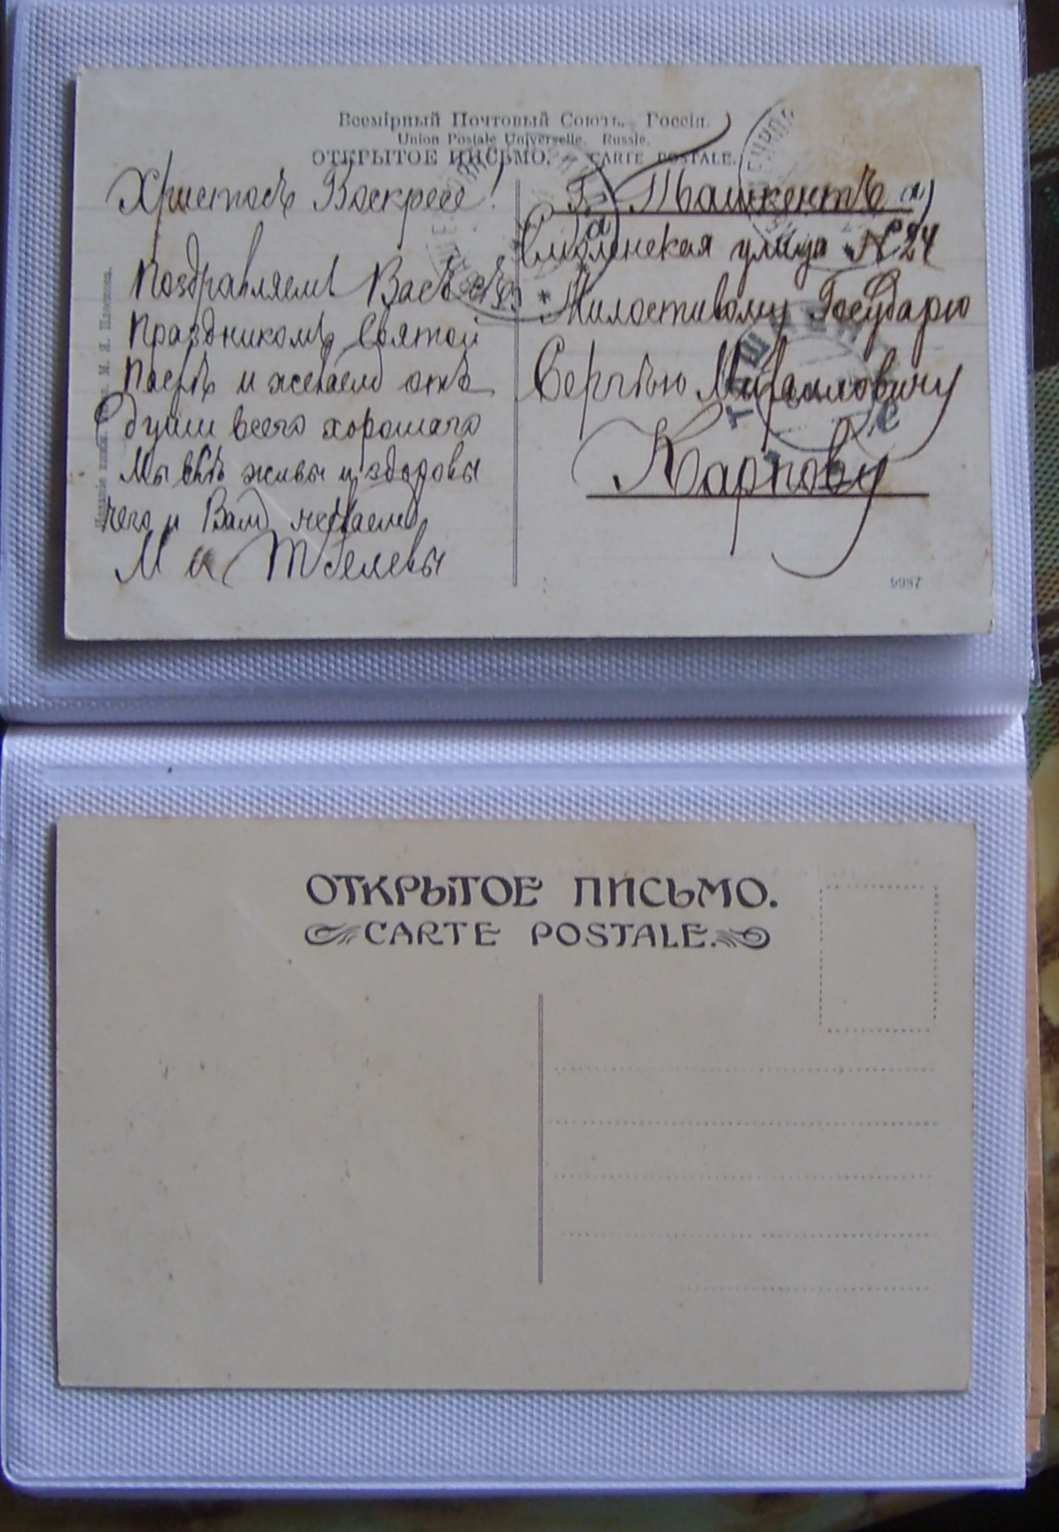 Всемірный Почтовый Союзъ. Россія.
Union Postale Universelle. Russie.
ОТКРЫТОЕ ПИСЬМО. — CARTE POSTALE.
Христосъ Воскресе!
Поздравляемъ Васъ съ
Праздникомъ Святой
Пасхъ и желаемъ отъ
души всего хорошаго
Мы всѣ живы и здоровы
чего и Вамъ желаемъ
М и
Г. Ташкентъ
Смоленская улица № 24
Милостивому Государю
Сергѣю Михайловичу
Карпову
ТАШКЕНТ
9987
ОТКРЫТОЕ ПИСЬМО.
CARTE POSTALE.